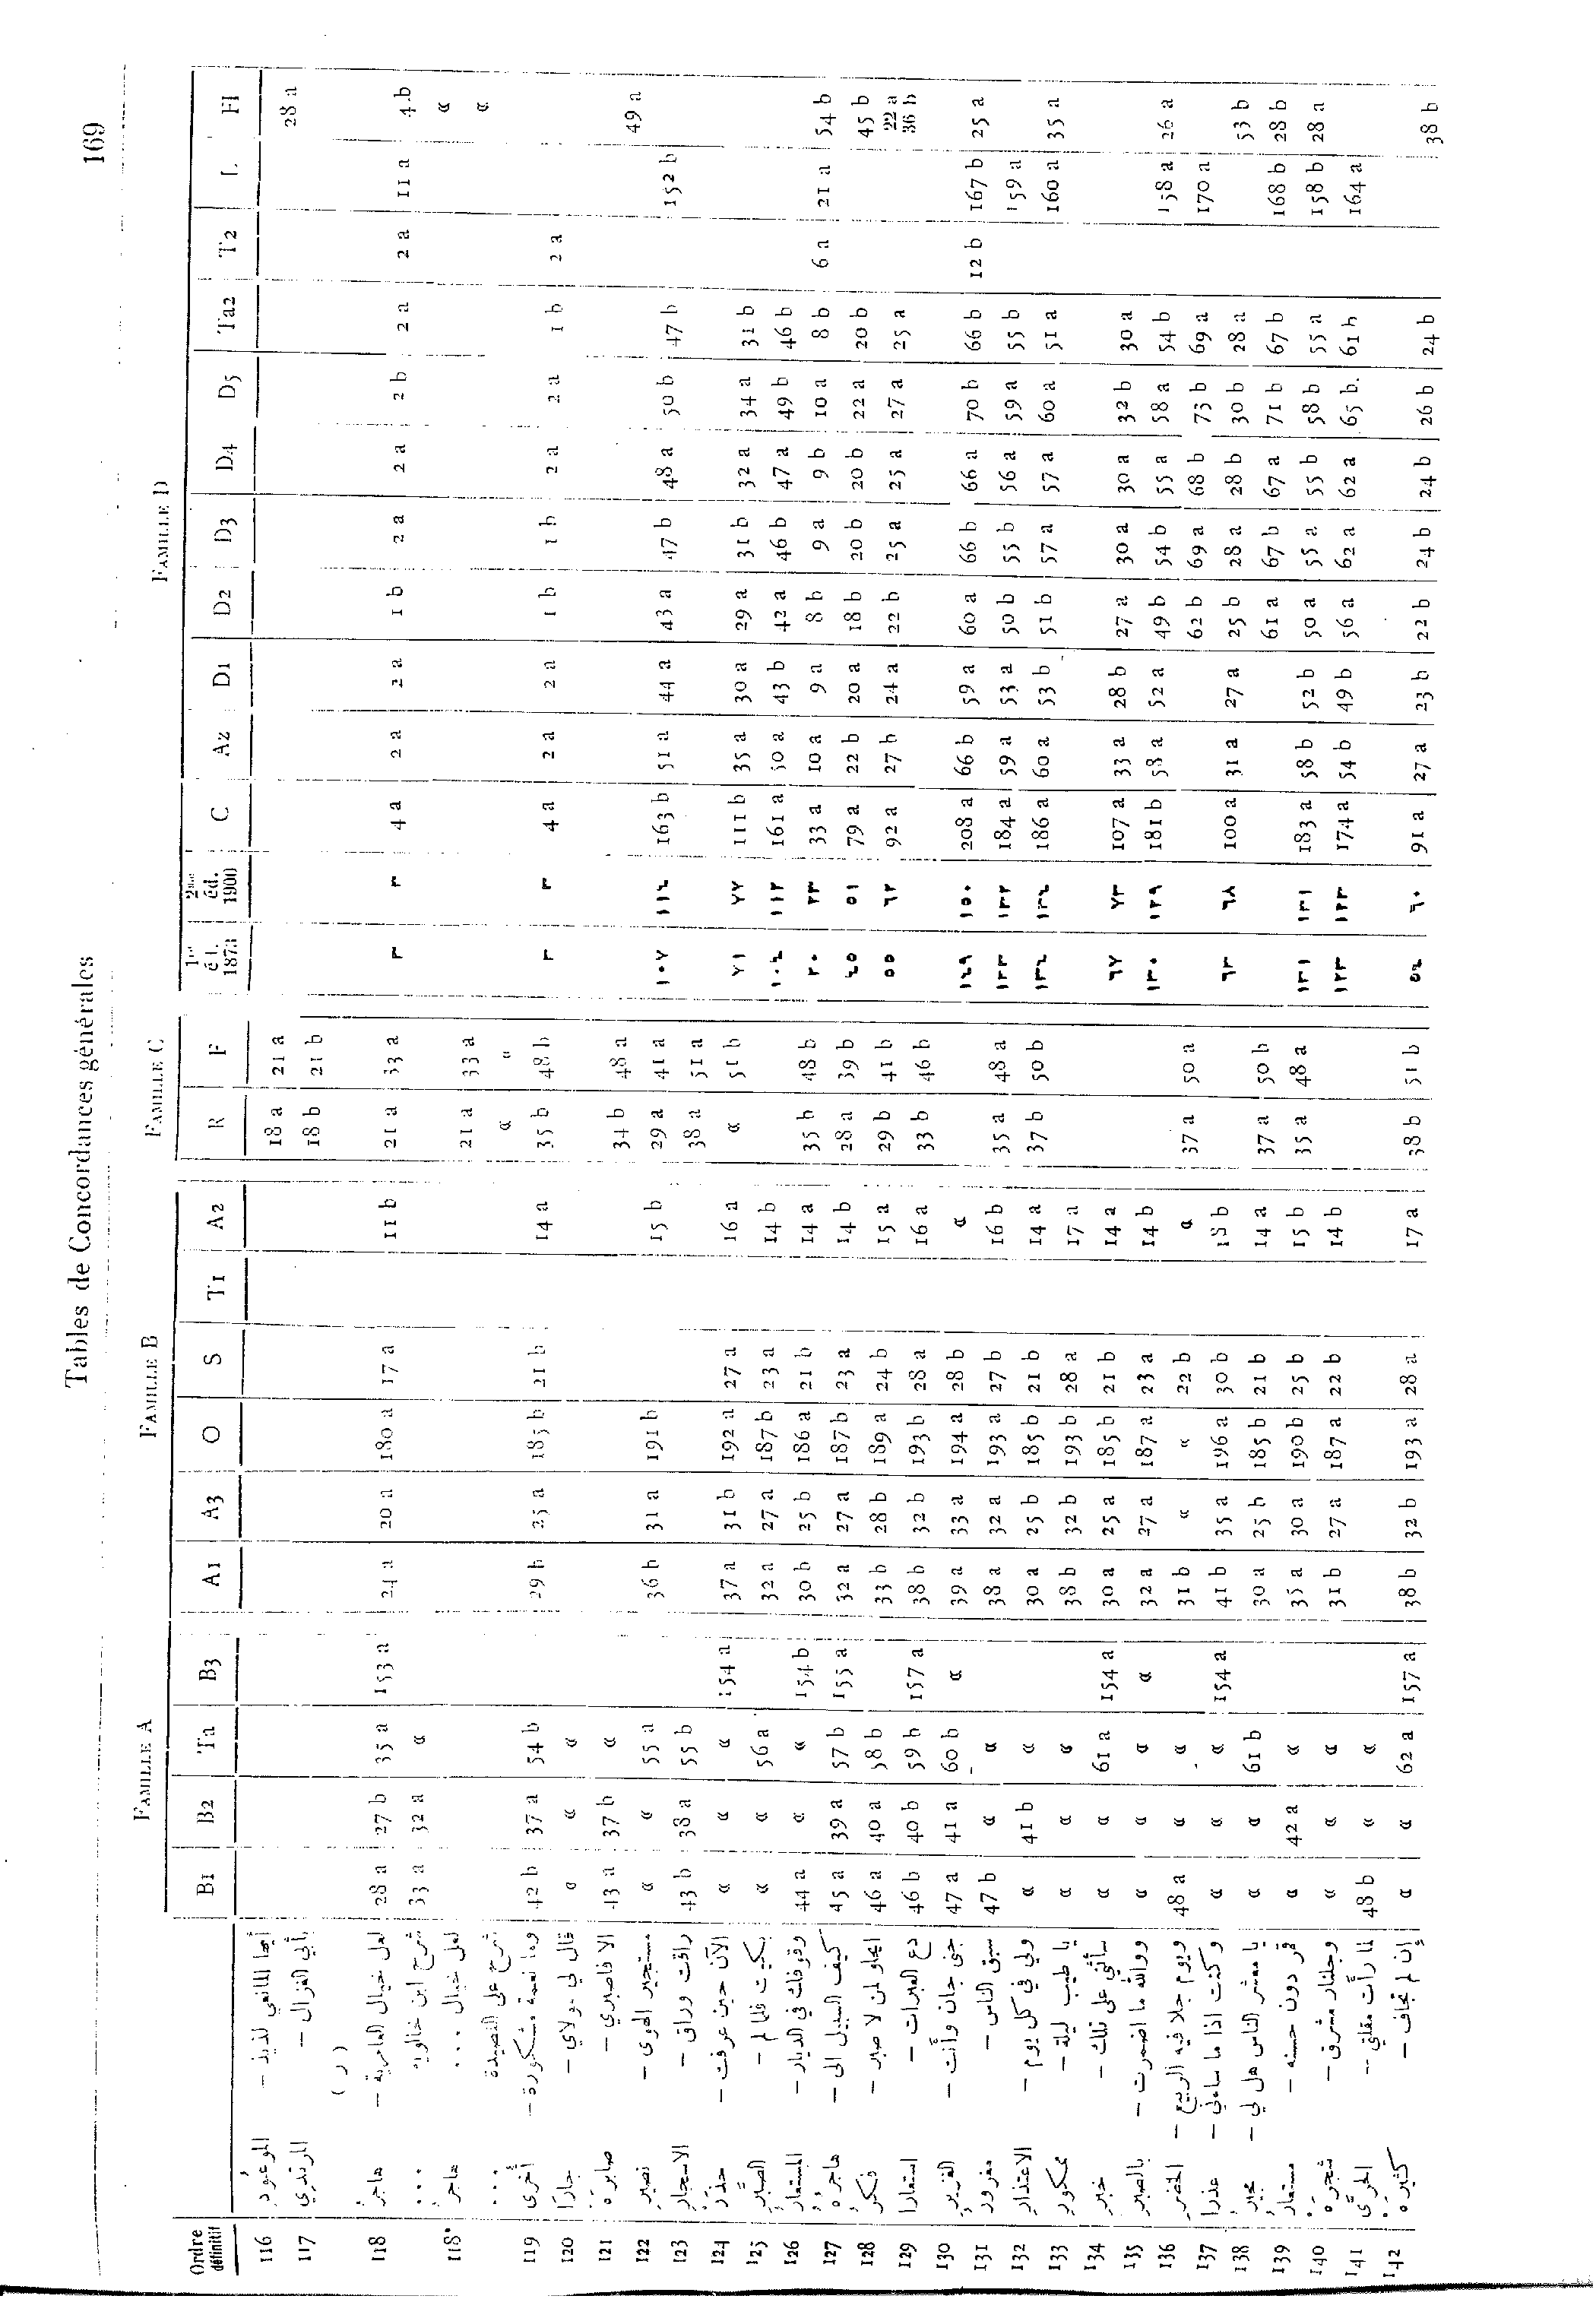 Tables de Concordances générales 169
FAMILLE A FAMILLE B FAMILLE C FAMILLE D
Ordre définitif B1 B2 Ta B3 A1 A3 O S T1 A2 R F 1re éd. 1873 2me éd. 1900 C A2 D1 D2 D3 D4 D5 Ta2 T2 L FI
116 الموعود أيها المانعي لذيذ — 18 a 21 a 28 a
117 المرتدي بأبي الغزال — 18 b 21 b
( ر )
118 هاجر لعل خيال العامرية — 28 a 27 b 35 a 153 a 24 a 20 a 180 a 17 a 11 b 21 a 33 a ٣ ٣ 4 a 2 a 2 a 1 b 2 a 2 a 2 b 2 a 2 a 11 a 4 b
... شرح ابن خالويه 33 a 32 a « «
118* هاجر لعل خيال ... 21 a 33 a «
... شرح على القصيدة « «
119 أخرى وما نعمة مشكورة — 42 b 37 a 54 b 29 b 25 a 185 b 21 b 14 a 35 b 48 b ٣ ٣ 4 a 2 a 2 a 1 b 1 b 2 a 2 a 1 b 2 a
120 جارا قال لي مولاي — « « «
121 صابره الا فاصبري — 43 a 37 b « 34 b 48 a 49 a
122 نصير مستجير الهوى — « « 55 a 36 b 31 a 191 b 15 b 29 a 41 a ١٠٧ ١١٤ 163 b 51 a 44 a 43 a 47 b 48 a 50 b 47 b 152 b
123 الاسحار راقت وراق — 43 b 38 a 55 b 38 a 51 a
124 حذر الآن حين عرفت — « « « 154 a 37 a 31 b 192 a 27 a 16 a « 51 b ٧١ ٧٧ 111 b 35 a 30 a 29 a 31 b 32 a 34 a 31 b
125 الصبر بكيت فلما لم — « « 56 a 32 a 27 a 187 b 23 a 14 b ١٠٤ ١١٢ 161 a 50 a 43 b 42 a 46 b 47 a 49 b 46 b
126 المستعار وقوفك في الديار — 44 a « « 154 b 30 b 25 b 186 a 21 b 14 a 35 b 48 b ٢٠ ٢٣ 33 a 10 a 9 a 8 b 9 a 9 b 10 a 8 b 6 a 21 a 54 b
127 هاجره كيف السبيل الى — 45 a 39 a 57 b 155 a 32 a 27 a 187 b 23 a 14 b 28 a 39 b ٤٥ ٥١ 79 a 22 b 20 a 18 b 20 b 20 b 22 a 20 b 45 b
128 فكر ايحلو لمن لا صبر — 46 a 40 a 58 b 33 b 28 b 189 a 24 b 15 a 29 b 41 b ٥٥ ٦٢ 92 a 27 b 24 a 22 b 25 a 25 a 27 a 25 a 22 a 36 b
129 استعارا دع العبرات — 46 b 40 b 59 b 157 a 38 b 32 b 193 b 28 a 16 a 33 b 46 b
130 الغزير جنى جان وأنت — 47 a 41 a 60 b « 39 a 33 a 194 a 28 b « ١٤٩ ١٥٠ 208 a 66 b 59 a 60 a 66 b 66 a 70 b 66 b 12 b 167 b 25 a
131 مغرور سبق الناس — 47 b « « 38 a 32 a 193 a 27 b 16 b 35 a 48 a ١٣٣ ١٣٢ 184 a 59 a 53 a 50 b 55 b 56 a 59 a 55 b 159 a
132 الاعتذار ولي في كل يوم — « 41 b « 30 a 25 b 185 b 21 b 14 a 37 b 50 b ١٣٤ ١٣٤ 186 a 60 a 53 b 51 b 57 a 57 a 60 a 51 a 160 a 35 a
133 محكور يا طيب ليلة — « « « 38 b 32 b 193 b 28 a 17 a
134 خبر سأثني على تلك — « « 61 a 154 a 30 a 25 a 185 b 21 b 14 a ٦٧ ٧٣ 107 a 33 a 28 b 27 a 30 a 30 a 32 b 30 a
135 بالصبر ووالله ما اضمرت — « « « « 32 a 27 a 187 a 23 a 14 b ١٣٠ ١٢٩ 181 b 58 a 52 a 49 b 54 b 55 a 58 a 54 b 158 a 26 a
136 الخضر ويوم جلا فيه الربيع — 48 a « « 31 b « « 22 b « 37 a 50 a 62 b 69 a 68 b 73 b 69 a 170 a
137 عذرا وكنت اذا ما ساءني — « « « 154 a 41 b 35 a 196 a 30 b 18 b ٦٣ ٦٨ 100 a 31 a 27 a 25 b 28 a 28 b 30 b 28 a 53 b
138 مجير يا معشر الناس هل لي — « « 61 b 30 a 25 b 185 b 21 b 14 a 37 a 50 b 61 a 67 b 67 a 71 b 67 b 168 b 28 b
139 مستعار قمر دون حسنه — « 42 a « 35 a 30 a 190 b 25 b 15 b 35 a 48 a ١٣١ ١٣١ 183 a 58 b 52 b 50 a 55 a 55 b 58 b 55 a 158 b 28 a
140 شجره وجلنار مشرق — « « « 31 b 27 a 187 a 22 b 14 b ١٢٣ ١٢٣ 174 a 54 b 49 b 56 a 62 a 62 a 65 b. 61 b 164 a
141 الحرى لما رأت مقلتي — 48 b « «
142 كثيره إن لم تجاف — « « 62 a 157 a 38 b 32 b 193 a 28 a 17 a 38 b 51 b ٥٤ ٦٠ 91 a 27 a 23 b 22 b 24 b 24 b 26 b 24 b 38 b